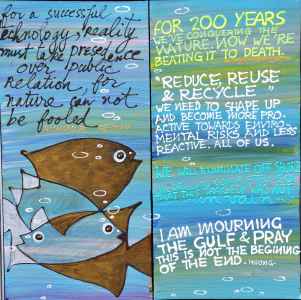 for a successful
technology, reality
must take presedence
over public
relation, for
nature can not
be fooled
FOR 200 YEARS
WE'VE CONQUERING THE
NATURE. NOW WE'RE
BEATING IT TO DEATH.
"REDUCE, REUSE
& RECYCLE"
WE NEED TO SHAPE UP
AND BECOME MORE PRO-
ACTIVE TOWARDS ENVIRO-
MENTAL RISKS AND LESS
REACTIVE. ALL OF US.
WE WILL
I AM MOURNING
THE GULF & PRAY
THIS IS NOT THE BEGINING
OF THE END.